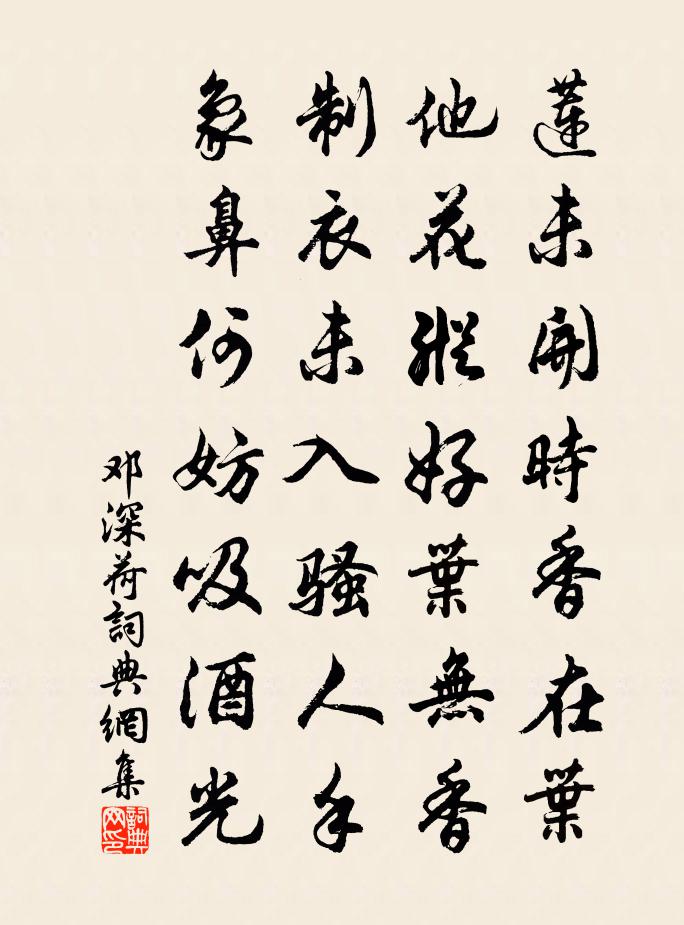 蓮未開時香在葉
他花縱好葉無香
制衣未入骚人手
象鼻何妨吸酒光
邓深荷詞典網集
詞典网印